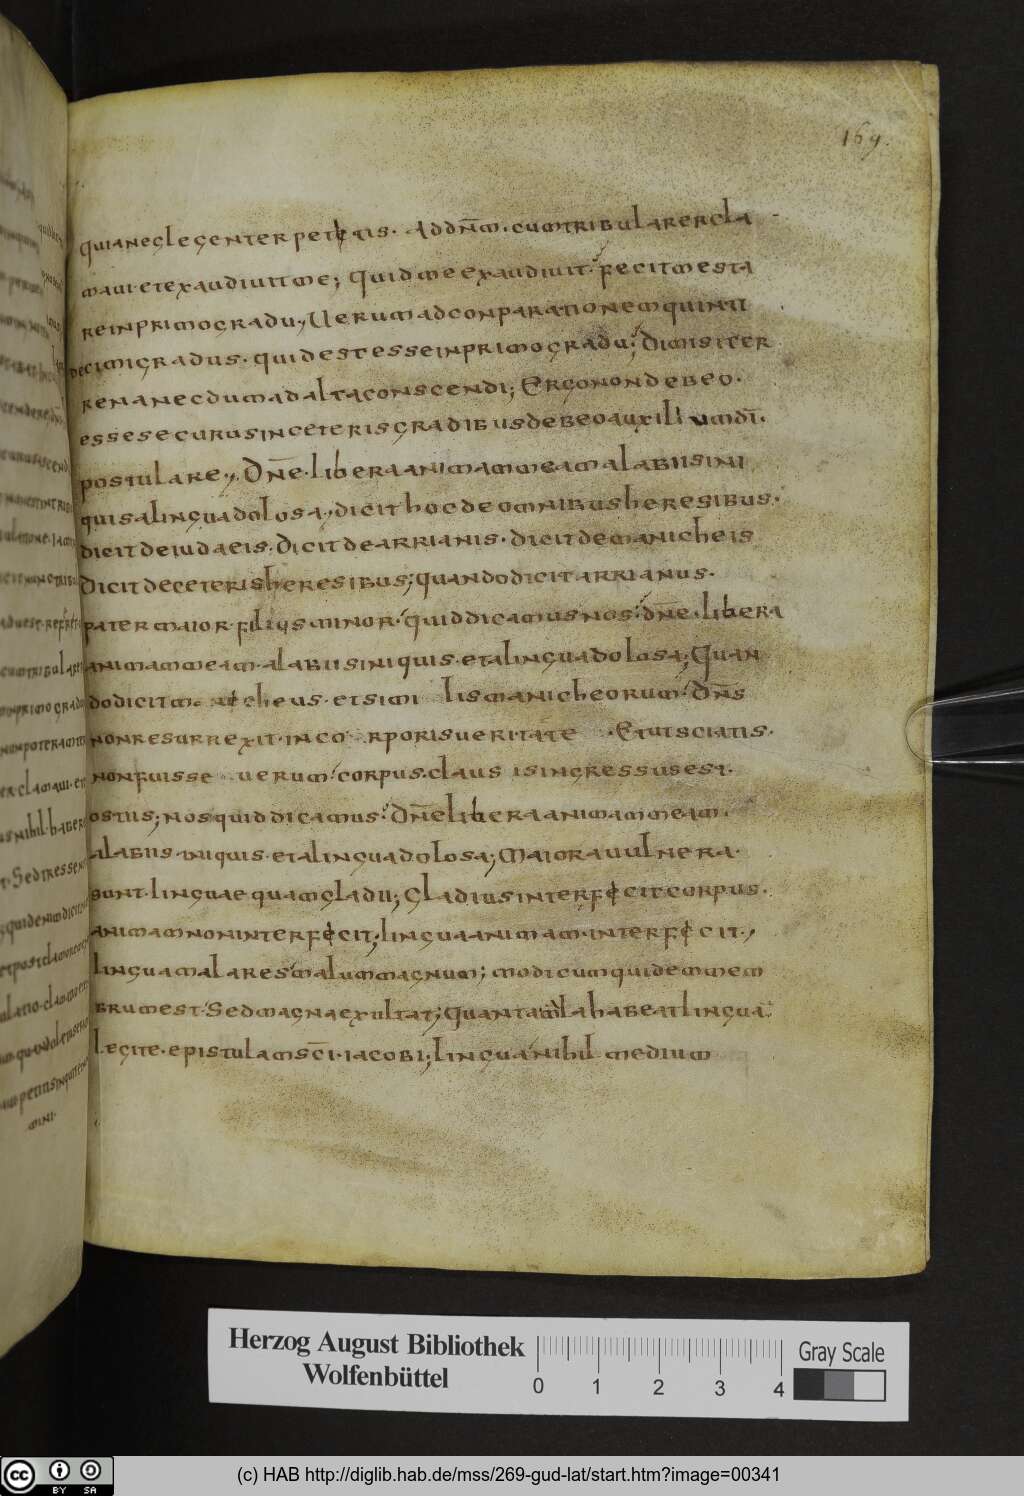 169.
quia neclegenter petetis. Ad dn̄m. cum tribularer cla
maui. et exaudiuit me; Quid me exaudiuit. fecit me sta
re in primo gradu, Uerum ad conparationem quinti
decimi gradus. quid est esse in primo gradu; Dimisi ter
rena necdum ad alta conscendi; Ergo non debeo.
esse securus in ceteris gradibus debeo auxilium dī.
postulare, Dn̄e. libera animam meam a labiis ini
quis a lingua dolosa, dicit hoc de omnibus heresibus.
dicit de iudaeis. Dicit de arrianis. dicit de manicheis
Dicit de ceteris heresibus; quando dicit arrianus.
pater maior. filius minor. quid dicamus nos. dn̄e. libera
animam meam. a labiis iniquis. et a lingua dolosa; Quan
do dicit m cheus. et simi lis manicheorum. Dn̄s
non resurrexit. in co rporis ueritate . Et ut sciatis.
non fuisse uerum corpus. claus is ingressus est.
ostiis; nos quid dicamus. dn̄e libera animam meam.
a labiis iniquis. et a lingua dolosa; Maiora uulnera.
sunt. linguae quam gladii; Gladius interfecit corpus.
animam non interfecit; lingua animam. interfecit.,
lingua mala res malum magnum; modicum quidem mem
brum est. Sed magna exultat; Quanta mala habeat lingua.
legite. epistulam sc̄i. iacobi; lingua nihil medium
Herzog August Bibliothek
Wolfenbüttel
0 1 2 3 4
Gray Scale
cc BY SA
(c) HAB http://diglib.hab.de/mss/269-gud-lat/start.htm?image=00341